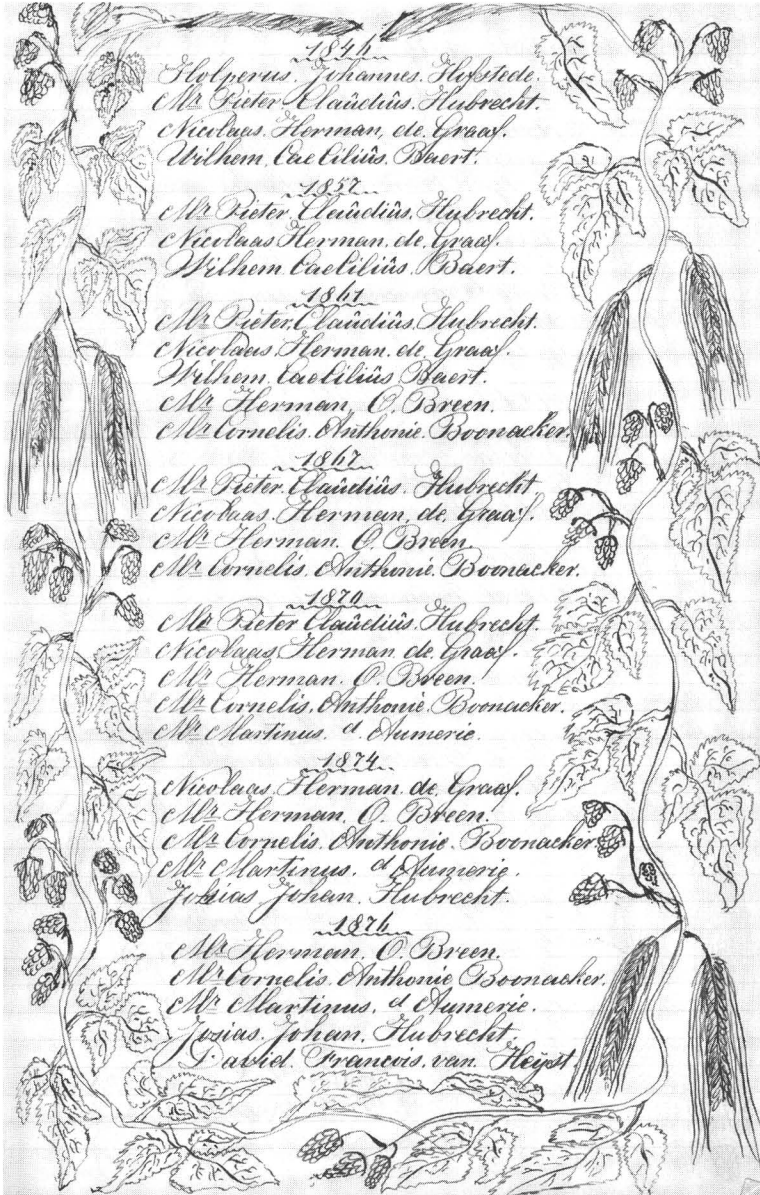 1846
Holperus. Johannes. Hofstede.
Mr Pieter Claûdiûs. Hubrecht.
Nicolaas. Herman, de. Graaf.
Wilhem. Caecilius. Baert.
1857
Mr Pieter. Claûdiûs. Hubrecht.
Nicolaas Herman. de. Graaf.
Wilhem. Caelilius. Baert.
1861
Mr Pieter. Claûdiûs. Hubrecht.
Nicolaas. Herman. de. Graaf.
Wilhem. Caelilius. Baert.
Mr Herman, O. Breen.
Mr Cornelis. Anthonie. Boonacker.
1867
Mr Pieter. Claûdiûs. Hubrecht
Nicolaas. Herman, de. Graaf.
Mr Herman. O. Breen.
Mr Cornelis. Anthonie. Boonacker.
1870
Mr Pieter Claûdiûs. Hubrecht.
Nicolaas Herman de. Graaf.
Mr Herman. O. Breen.
Mr Cornelis. Anthonie. Boonacker.
Mr Martinus. d Aumerie.
1874
Nicolaas. Herman. de. Graaf.
Mr Herman, O. Breen.
Mr Cornelis. Anthonie. Boonacker.
Mr Martinus. d Aumerie.
Josias Johan. Hubrecht.
1876
Mr Herman. O. Breen.
Mr Cornelis. Anthonie Boonacker.
Mr Martinus. d Aumerie.
Josias. Johan. Hubrecht
David. Francois. van. Heyst.